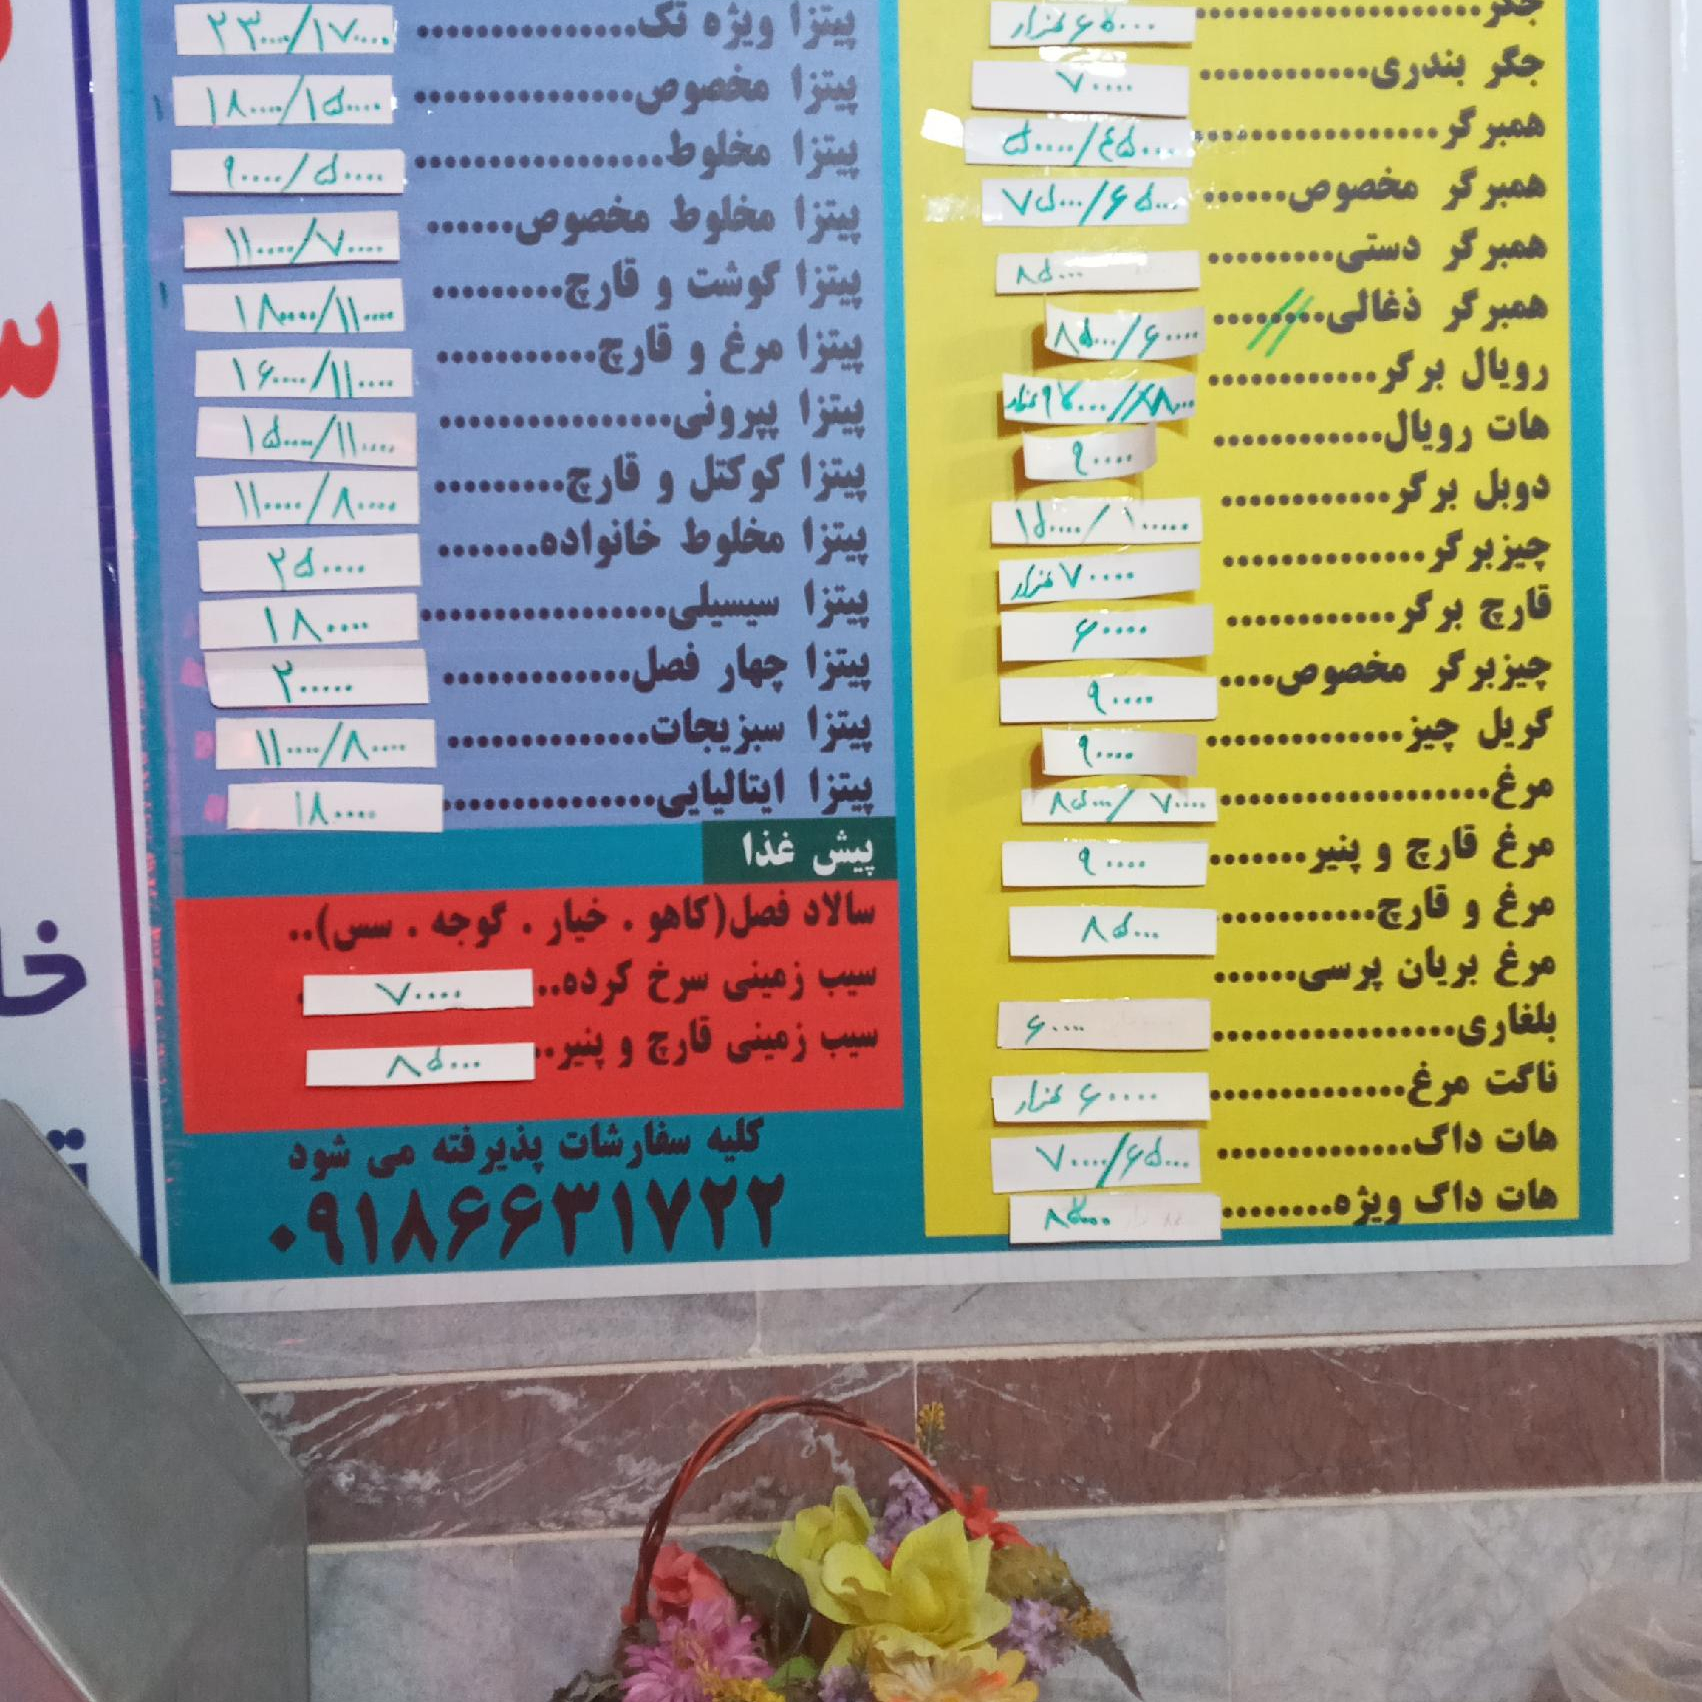 جگر.................... ۶۵۰۰۰ هزار
جگر بندری............ ۷۰۰۰۰
همبرگر................. ۵۰۰۰۰/۴۵۰۰۰
همبرگر مخصوص...... ۷۵۰۰۰/۶۵۰۰۰
همبرگر دستی......... ۸۵۰۰۰
همبرگر ذغالی........ ۸۵۰۰۰/۶۰۰۰۰
رویال برگر............
هات رویال............ ۹۰۰۰۰
دوبل برگر............ ۱۵۰۰۰۰/۱۰۰۰۰۰
چیزبرگر.............. ۷۰۰۰۰ هزار
قارچ برگر............ ۶۰۰۰۰
چیزبرگر مخصوص.... ۹۰۰۰۰
گریل چیز.............. ۹۰۰۰۰
مرغ................... ۸۵۰۰۰/۷۰۰۰۰
مرغ قارچ و پنیر....... ۹۰۰۰۰
مرغ و قارچ........... ۸۵۰۰۰
مرغ بریان پرسی......
بلغاری................. ۶۰۰۰۰
ناکت مرغ.............. ۶۰۰۰۰ هزار
هات داک.............. ۷۰۰۰۰/۶۵۰۰۰
هات داک ویژه........
پیتزا ویژه تک............... ۲۳۰۰۰۰/۱۷۰۰۰۰
پیتزا مخصوص............... ۱۸۰۰۰۰/۱۵۰۰۰۰
پیتزا مخلوط................. ۹۰۰۰۰/۵۰۰۰۰
پیتزا مخلوط مخصوص...... ۱۱۰۰۰۰/۷۰۰۰۰
پیتزا گوشت و قارچ......... ۱۸۰۰۰۰/۱۱۰۰۰۰
پیتزا مرغ و قارچ........... ۱۶۰۰۰۰/۱۱۰۰۰۰
پیتزا پپرونی................ ۱۵۰۰۰۰/۱۱۰۰۰۰
پیتزا کوکتل و قارچ......... ۱۱۰۰۰۰/۸۰۰۰۰
پیتزا مخلوط خانواده....... ۲۵۰۰۰۰
پیتزا سیسیلی................. ۱۸۰۰۰۰
پیتزا چهار فصل............. ۲۰۰۰۰۰
پیتزا سبزیجات.............. ۱۱۰۰۰۰/۸۰۰۰۰
پیتزا ایتالیایی............... ۱۸۰۰۰۰
پیش غذا
سالاد فصل(کاهو . خیار . گوجه . سس)..
سیب زمینی سرخ کرده.. ۷۰۰۰۰
سیب زمینی قارچ و پنیر.. ۸۵۰۰۰
کلیه سفارشات پذیرفته می شود
۰۹۱۸۶۶۳۱۷۲۲